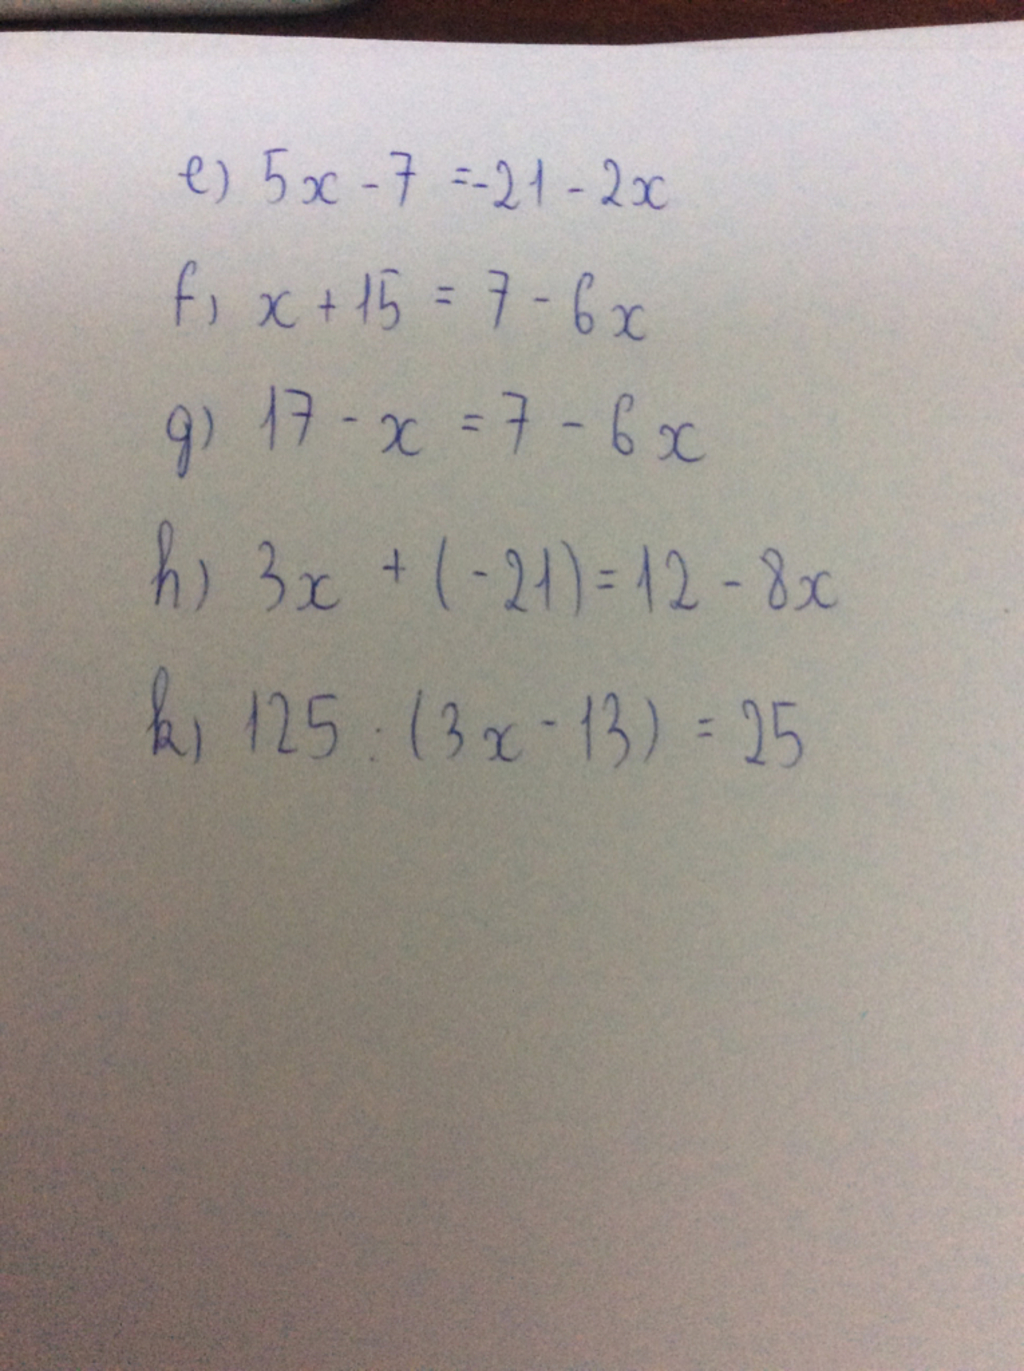 e) 5x - 7 = -21 - 2x
f) x + 15 = 7 - 6x
g) 17 - x = 7 - 6x
h) 3x + (-21) = 12 - 8x
k) 125 : (3x - 13) = 25